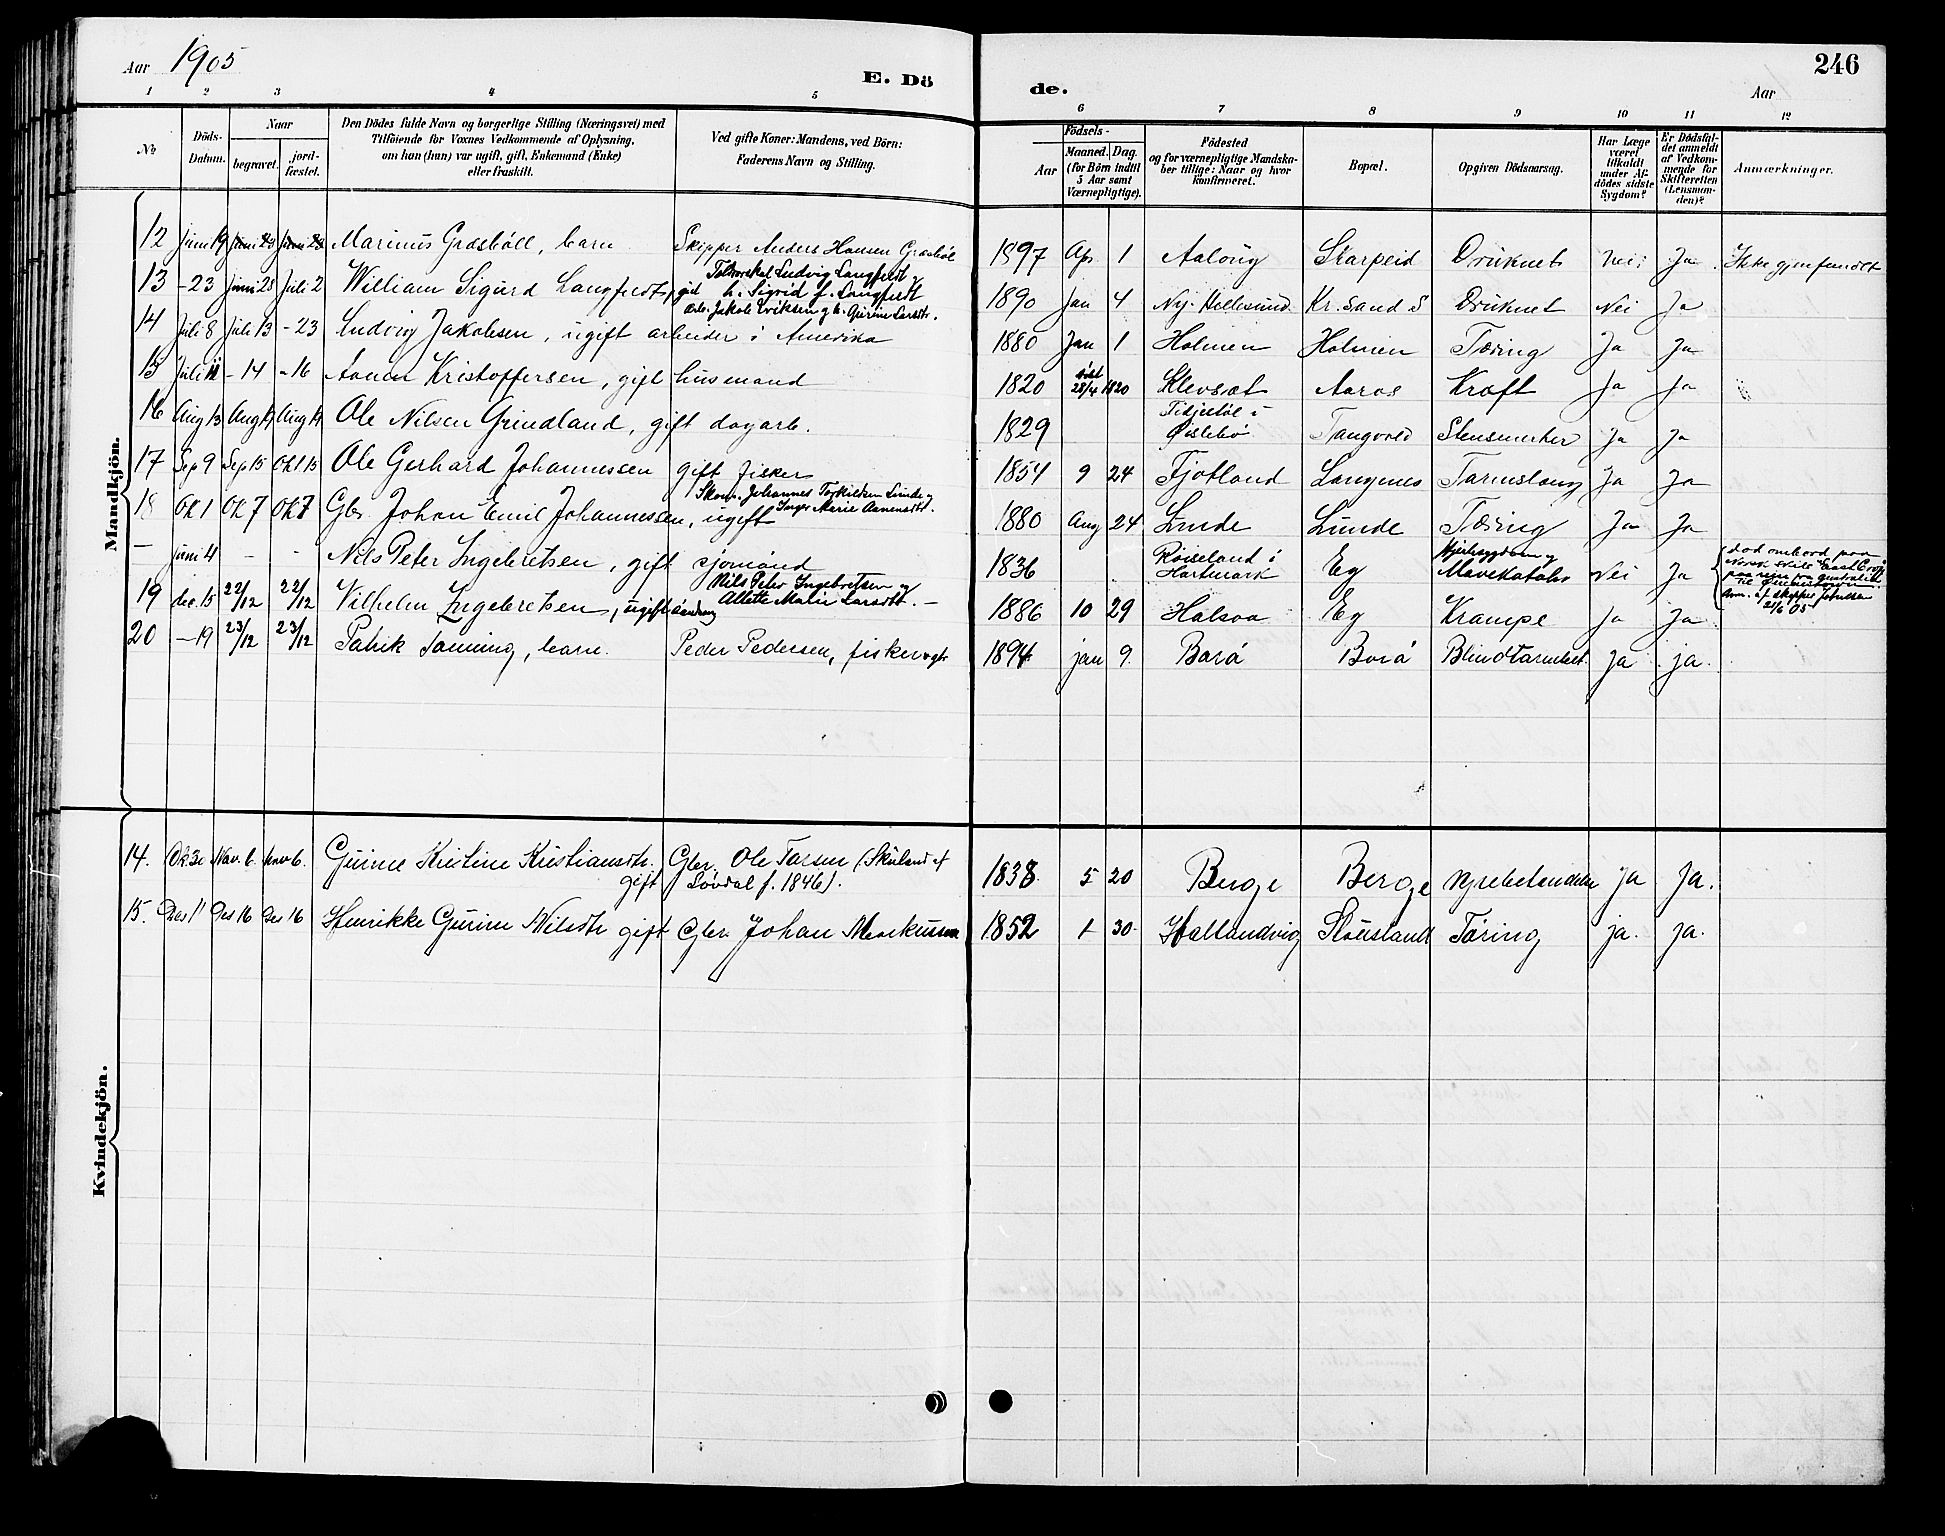 Aar 1905
E. Dö
de.
246
Aar
1 2 3 4 5 6 7 8 9 10 11 12
No
Döds-Datum.
Naar
begravet.
jord-fæstet.
Den Dödes fulde Navn og borgerlige Stilling (Næringsvei) med
Tilföiende for Voxnes Vedkommende af Oplysning,
om han (hun) var ugift, gift, Enkemand (Enke)
eller fraskilt.
Ved gifte Koner: Mandens, ved Börn:
Faderens Navn og Stilling.
Födsels-
Aar
Maaned. Dag.
(for Börn indtil
5 Aar samt
Værnepligtige).
Födested
og for værnepligtige Mandska-
ber tillige: Naar og hvor
konfirmeret.
Bopæl.
Opgiven Dödsaarsag.
Har Læge
været
tilkaldt
under Af-
dödes sidste
Sygdom?
Er Dödsfal-
det anmeldt
af Vedkom-
mende for
Skifteretten
(Lensman-
den)?
Anmærkninger.
Mandkjön.
12 Juni 19 Marinus Græsböll, barn Skipper Anders Hansen Græsböl 1897 Apr 1 Aalöug Skarpeid Druknet Nei Ja Ikke gjenfundet
13 -23 Juni 28 Juli 2 William Sigurd Langfeldt, Ludvig Langfeldt
h. Sigrid f. Langfeldt 1890 Jan 4 Ny-Hellesund Kr.sand S Druknet Nei Ja
14 Juli 8 Juli 13 -23 Ludvig Jakobsen, ugift arbeider i Amerika Arb. Jakob Eriksen og h. Gurine Larsdt. 1880 Jan 1 Holmen Holmen Tæring Ja Ja
15 Juli 11 -14 -16 Aanen Kristoffersen, gift husmand 1820 døbt 28/4 1820 Klevset Aaros Kræft Ja Ja
16 Aug 13 Aug 19 Aug 19 Ole Nilsen Grindland, gift dagarb. 1829 Øislebø Tangvold Stensmerter Ja Ja
17 Sep 9 Sep 15 Okt 15 Ole Gerhard Johannessen gift fisker 1854 9 24 Fjotland Langenes Tarmslyng Ja Ja
18 Ok 1 Ok 7 Ok 7 Gbr. Johan Emil Johannessen, ugift Johannes Torkildsen Lunde og
Inger Marie Aanensdt. 1880 Aug 24 Lunde Lunde Tæring Ja Ja
- juni 4 - - Nils Peter Ingebretsen, gift sjömand 1836 Röiseland i
Hartmark Eg Hjertesygdom og
Mavekatahr Nei Ja död ombord paa
19 dec. 15 22/12 22/12 Vilhelm Ingebretsen, ugift Nils Peter Ingebretsen og
Allette Malie Larsdt. - 1886 10 29 Halsaa Eg Krampe Ja Ja
20 -19 23/12 23/12 Patrik Tanning, barn. Peder Pedersen, fisker gbr 1894 jan 9. Borö Borö Blindtarmbet. Ja ja.
Kvindekjön.
14. Ok 30 Nov. 6 Nov 6. Gurine Kristine Kristiansdtr.
gift Gbr. Ole Tarsen (Skuland af
Lövdal f. 1846). 1838 5 20 Berge Berge Nyrebetændelse Ja Ja.
15. Des 11 Des 16 Des 16 Henrikke Gurine Nilsdtr gift Gbr. Johan Markussen 1852 1 30. Hallandvig Stousland Täring ja. ja.